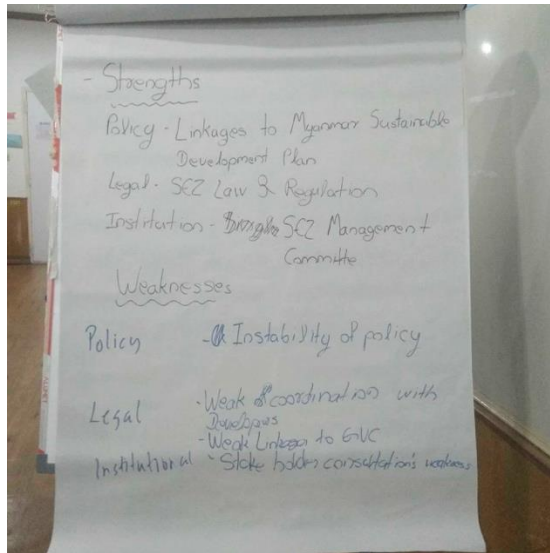 - Strengths
Policy - Linkages to Myanmar Sustainable
Development Plan
Legal - SEZ Law & Regulation
Institution - SEZ Management
Committe
Weaknesses
Policy - Instability of policy
Legal - Weak coordination with
Developers
- Weak Linkages to GVC
Institutional - Stake holder consultation's weakness